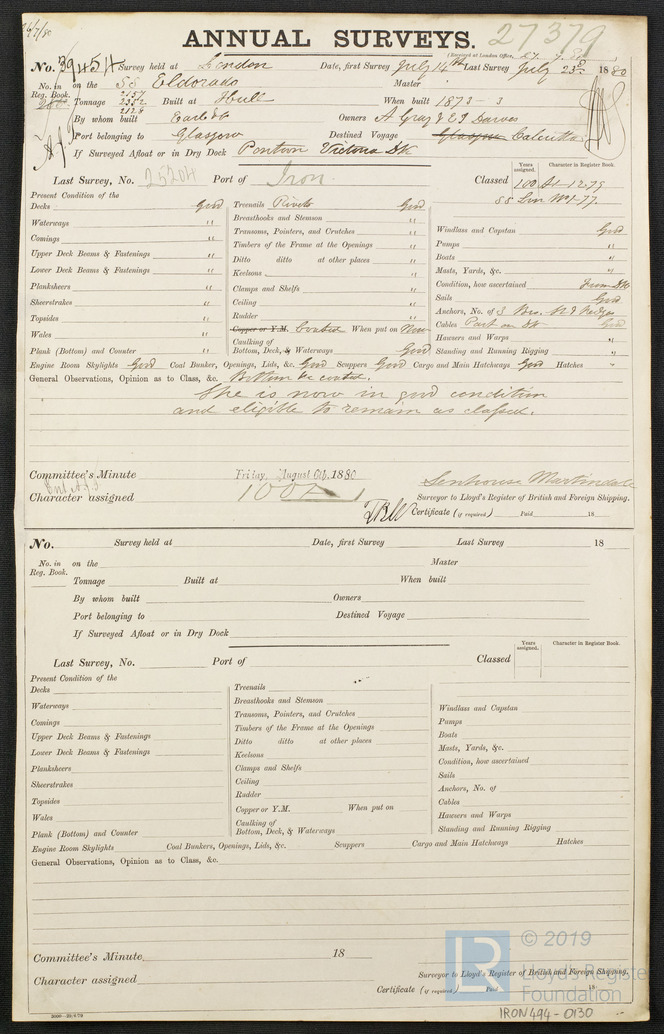 26/7/80
ANNUAL SURVEYS.
27379
(Received at London Office,
No. 39454 Survey held at London Date, first Survey July 14th Last Survey July 23rd 1880
No. in Reg. Book. on the SS Eldorado Master
Tonnage 2157 2332 2128 Built at Hull When built 1873 - 3
By whom built Earle & Co Owners A Gray & E J Dawes
Port belonging to Glasgow Destined Voyage Glasgow Calcutta
If Surveyed Afloat or in Dry Dock Pontoon Victoria Dk
Years assigned. Character in Register Book.
Last Survey, No. 25204 Port of Iron Classed 100 A1-12.79
SS Lon No1-77
Present Condition of the
Decks Good Treenails Rivets Good
Breasthooks and Stemson "
Waterways " Transoms, Pointers, and Crutches " Windlass and Capstan Good
Comings " Timbers of the Frame at the Openings " Pumps "
Upper Deck Beams & Fastenings " Ditto ditto at other places " Boats "
Lower Deck Beams & Fastenings " Keelsons " Masts, Yards, &c. "
Planksheers " Clamps and Shelfs " Condition, how ascertained From Dk
Sheerstrakes " Ceiling " Sails Good
Topsides " Rudder " Anchors, No. of 3 Bro. & 2 Kedges
Wales " Copper or Y.M. Coated When put on Now Cables Part on Dk Good
Caulking of Hawsers and Warps "
Plank (Bottom) and Counter " Bottom, Deck, & Waterways Good Standing and Running Rigging "
Engine Room Skylights Good Coal Bunker, Openings, Lids, &c. Good Scuppers Good Cargo and Main Hatchways Good Hatches "
General Observations, Opinion as to Class, &c. Bottom recoated.
She is now in good condition
and eligible to remain as classed.
Committee's Minute Friday, August 6th, 1880
Senhouse Martindale
Character assigned 100 A 1 Surveyor to Lloyd's Register of British and Foreign Shipping.
Certificate (if required) Paid 18
No. Survey held at Date, first Survey Last Survey 18
No. in Reg. Book. on the Master
Tonnage Built at When built
By whom built Owners
Port belonging to Destined Voyage
If Surveyed Afloat or in Dry Dock
Years assigned. Character in Register Book.
Last Survey, No. Port of Classed
Present Condition of the
Decks Treenails
Waterways Breasthooks and Stemson Windlass and Capstan
Comings Transoms, Pointers, and Crutches Pumps
Timbers of the Frame at the Openings
Upper Deck Beams & Fastenings Ditto ditto at other places Boats
Lower Deck Beams & Fastenings Keelsons Masts, Yards, &c.
Planksheers Clamps and Shelfs Condition, how ascertained
Sheerstrakes Ceiling Sails
Rudder Anchors, No. of
Topsides Copper or Y.M. When put on Cables
Wales Caulking of Hawsers and Warps
Plank (Bottom) and Counter Bottom, Deck, & Waterways Standing and Running Rigging
Engine Room Skylights Coal Bunkers, Openings, Lids, &c. Scuppers Cargo and Main Hatchways Hatches
General Observations, Opinion as to Class, &c.
Committee's Minute 18
Character assigned Surveyor to Lloyd's Register of British and Foreign Shipping.
Certificate (if required) Paid 18
© 2019
LR
Lloyd's Register
Foundation
3000—29/6/79
IRON494-0130